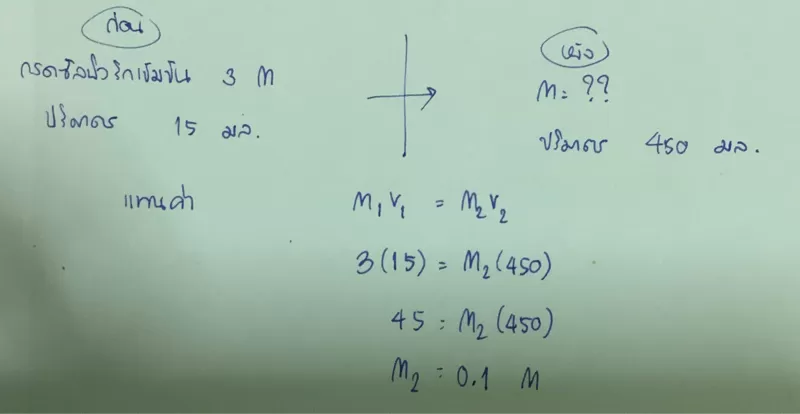 ก่อน
กรดซัลฟิวริกเข้มข้น 3 M
ปริมาตร 15 มล.
หลัง
M = ??
ปริมาตร 450 มล.
แทนค่า M₁V₁ = M₂V₂
3(15) = M₂(450)
45 = M₂(450)
M₂ = 0.1 M